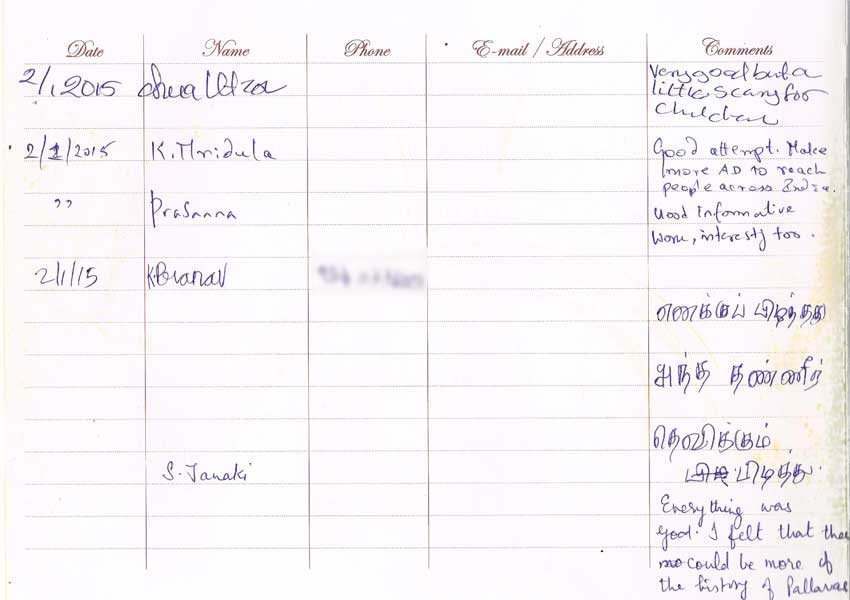 Date Name Phone E-mail / Address Comments
2/1.2015 Very good but a
little scary for
children
2/1/2015 K. Mridula Good attempt. Make
more AD to reach
people across India.
" Prasanna Good Informative
work, too.
2/1/15 K Pranav
எனக்குப் பிடித்தது
அந்த தண்ணீர்
பிடித்து.
S. Janaki
Everything was
good. I felt that
could be more of
the history of Pallavas